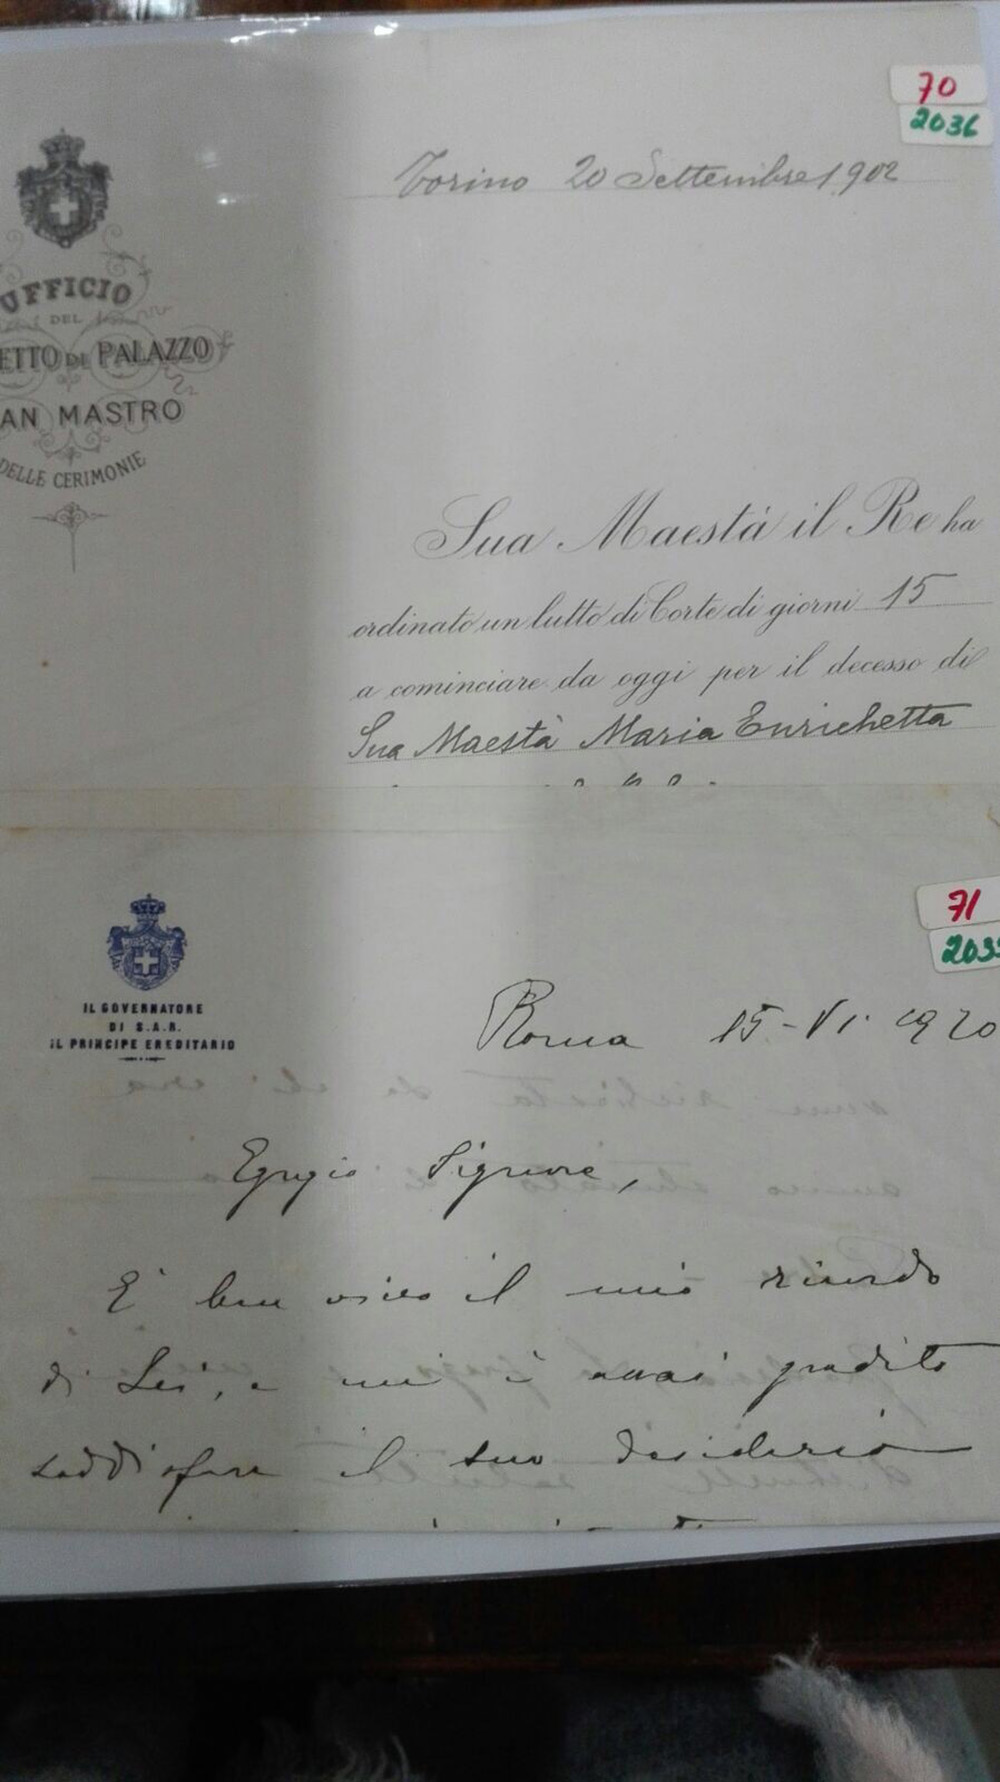 70
2036
Torino 20 Settembre 1902
UFFICIO
DEL
ETTO DI PALAZZO
AN MASTRO
DELLE CERIMONIE
Sua Maestà il Re ha
ordinato un lutto di Corte di giorni 15
a cominciare da oggi per il decesso di
Sua Maestà Maria Enrichetta
71
203
IL GOVERNATORE
DI S.A.R.
IL PRINCIPE EREDITARIO
Roma 15-VI-1920
Egregio Signore,
È ben vivo il mio ricordo
di Lei, e mi è assai gradito
soddisfare il suo desiderio